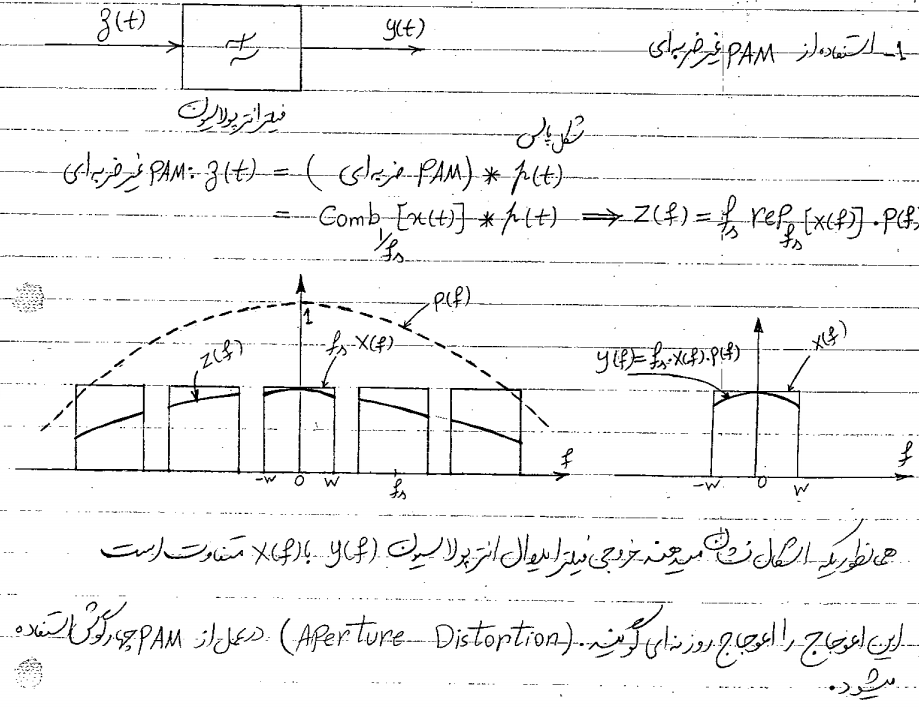 1- استفاده از PAM غیرضربه‌ای
z(t) y(t)
فیلتر انترپولاسیون
شکل پالس
PAM غیرضربه‌ای: z(t) = (PAM ضربه‌ای) * p(t)
= Comb_{1/f_s}[x(t)] * p(t) ⟹ Z(f) = f_s rep_{f_s}[X(f)] . P(f)
1 P(f)
Z(f) f_s X(f) y(f)=f_s.X(f).P(f) X(f)
-W 0 W f_s f -W 0 W f
همانطوریکه اشکال نشان میدهند خروجی فیلتر ایدوال انترپولاسیون y(f) با X(f) متفاوت است
این اعوجاج را اعوجاج روزنه‌ای گویند. (Aperture Distortion) در عمل از PAM چهارگوش استفاده
میشود.